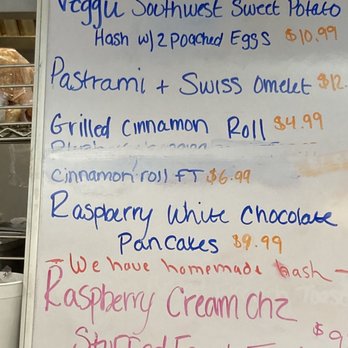 Veggy Southwest Sweet Potato
Hash w/2 Poached Eggs $10.99
Pastrami + Swiss Omelet $12
Grilled Cinnamon Roll $4.99
Cinnamon roll FT $6.99
Raspberry White Chocolate
Pancakes $9.99
- We have homemade hash -
Raspberry Cream Chz
Stuffed $9